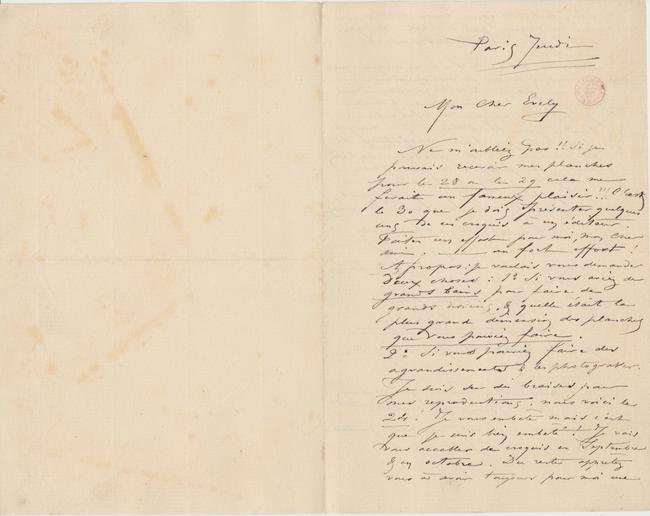 Paris Jeudi
Mon Cher Evely
Ne m'oubliez pas !! Si je
pouvais recevoir mes planches
pour le 28 ou le 29 cela me
ferait un fameux plaisir !!! C'est
le 30 que je dois présenter quelques
uns de ces croquis à un éditeur.
Faites un effort pour moi, mon cher
ami, un fort effort !
A propos : je voulais vous demander
Deux choses : 1º Si vous aviez de
grands bains pour faire de
grands dessins, & quelle était la
plus grande dimension des planches
que vous pouviez faire.
2º Si vous pouviez faire des
agrandissements & les photograver.
Je suis sur des braises pour
mes reproductions, nous voici le
24. Je vous embête mais c'est
que je suis bien embêté ! Je vais
vous accabler de croquis en Septembre
& en octobre. Du reste
vous à avoir toujours pour moi une